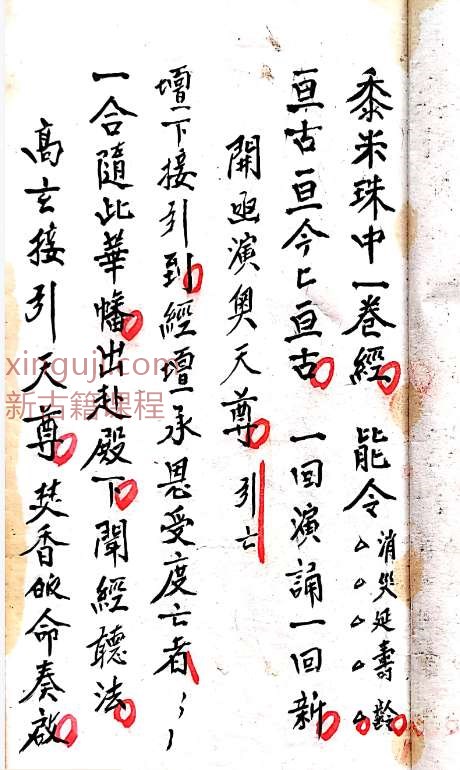 黍米珠中一卷經 能令消災延壽齡
△△△△△
亘古亘今匕亘古 一回演誦一回新
開函演奧天尊 引亡
壇下接引到經壇承恩受度亡者
一合隨此華幡出赴殿下聞經聽法
高玄接引天尊 焚香皈命奏啟
xinguji.com
新古籍课程